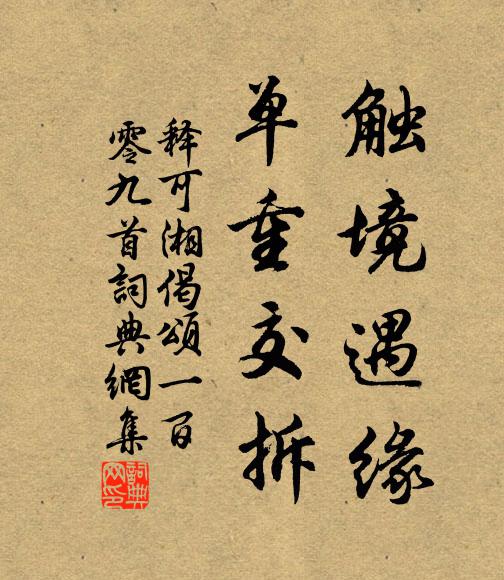 触境遇缘
单重交拆
释可湘偈颂一百
零九首詞典網集
詞典网印